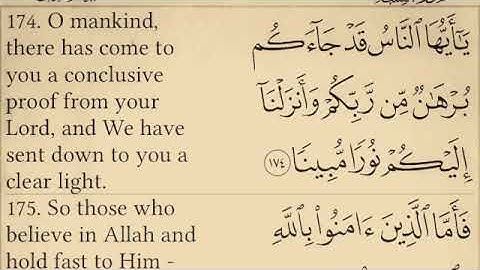 174. O mankind,
there has come to
you a conclusive
proof from your
Lord, and We have
sent down to you a
clear light.
يَـٰٓأَيُّهَا ٱلنَّاسُ قَدْ جَآءَكُم
بُرْهَـٰنٌ مِّن رَّبِّكُمْ وَأَنزَلْنَآ
إِلَيْكُمْ نُورًا مُّبِينًا ١٧٤
175. So those who
believe in Allah and
hold fast to Him -
فَأَمَّا ٱلَّذِينَ ءَامَنُوا۟ بِٱللَّهِ